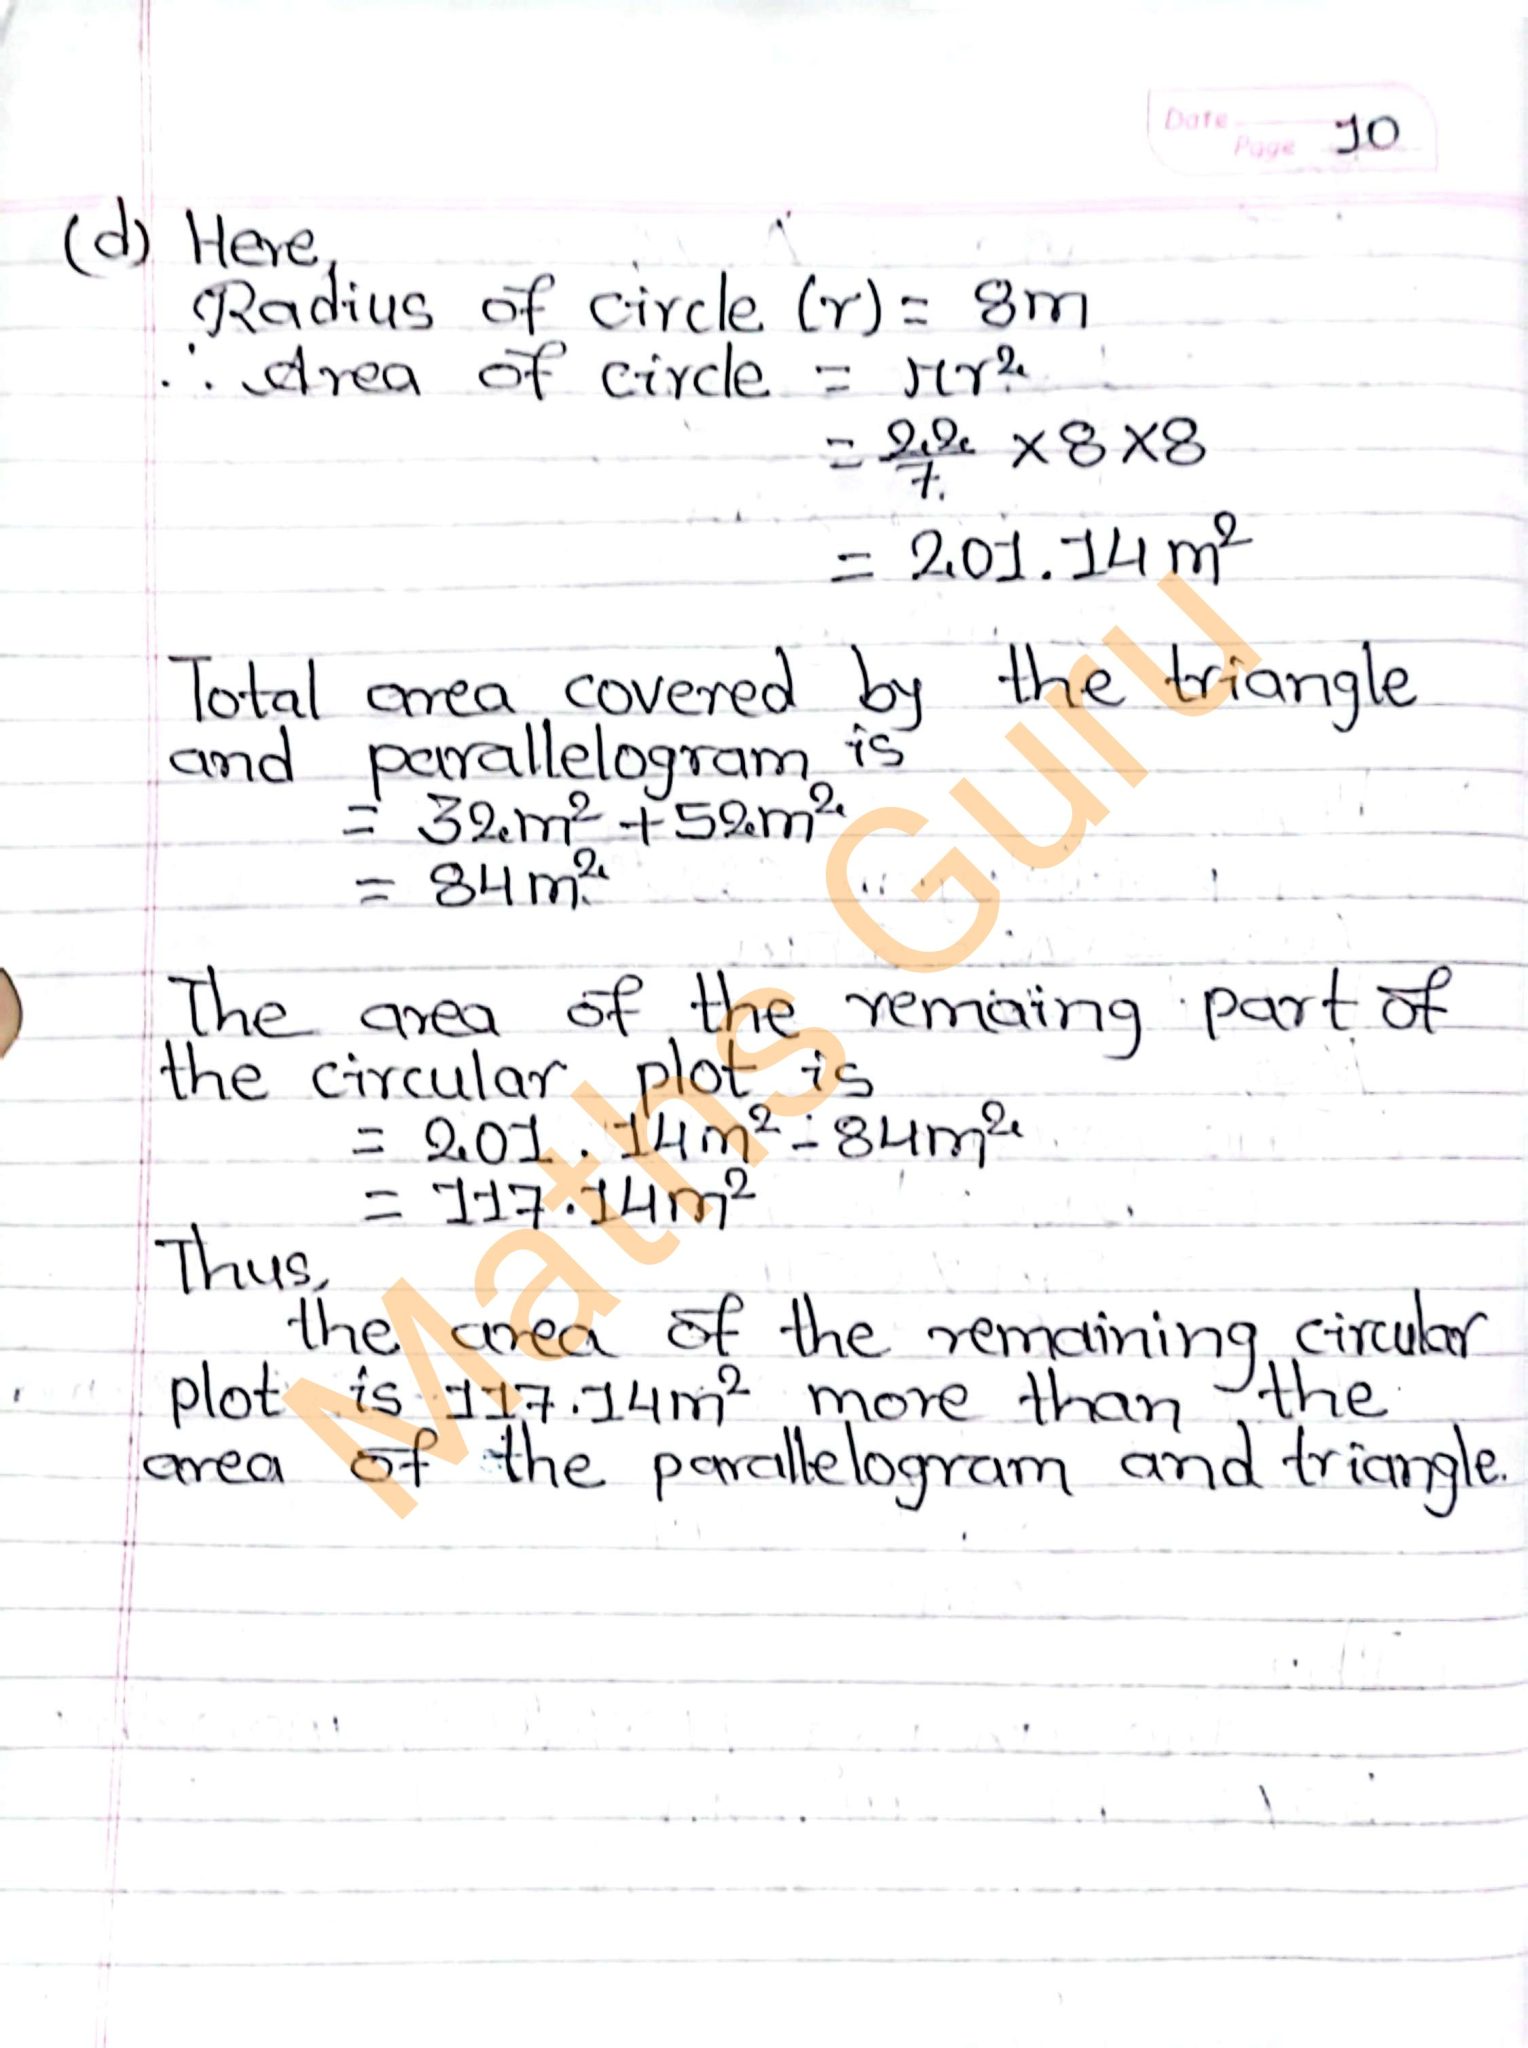 Date
Page 10
(d) Here,
Radius of circle (r) = 8m
∴ Area of circle = πr²
= 22/7 × 8 × 8
= 201.14 m²
Total area covered by the triangle
and parallelogram is
= 32m² + 52m²
= 84m²
The area of the remaing part of
the circular plot is
= 201.14m² - 84m²
= 117.14m²
Thus,
the area of the remaining circular
plot is 117.14m² more than the
area of the parallelogram and triangle.
Maths Guru